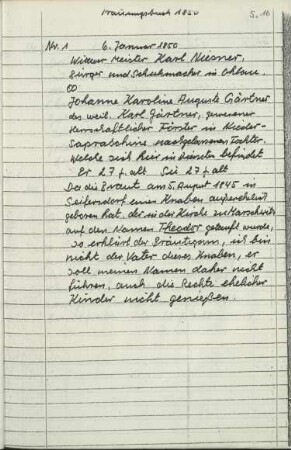 Trauungsbuch 1850
S. 16
Nr. 1 6. Januar 1850
Witwer Meister Karl Niesner,
Bürger und Schuhmacher in Ohlau.
∞
Johanne Karoline Auguste Gärtner
des weil. Karl Gärtner, gewesener
herrschaftlicher Förster in Nieder-
nachgelassenen Tochter,
Welche sich hier in Diensten befindet
Er 27 J. alt Sie 27 J. alt
Da die Braut am 5. August 1845 in
Seifersdorf einen Knaben außerehelich
geboren hat, der in der Kirche zu
auf den Namen Theodor getauft wurde,
so erklärt der Bräutigam, ich bin
nicht der Vater dieses Knaben, er
soll meinen Namen daher nicht
führen, auch die Rechte ehelicher
Kinder nicht genießen.